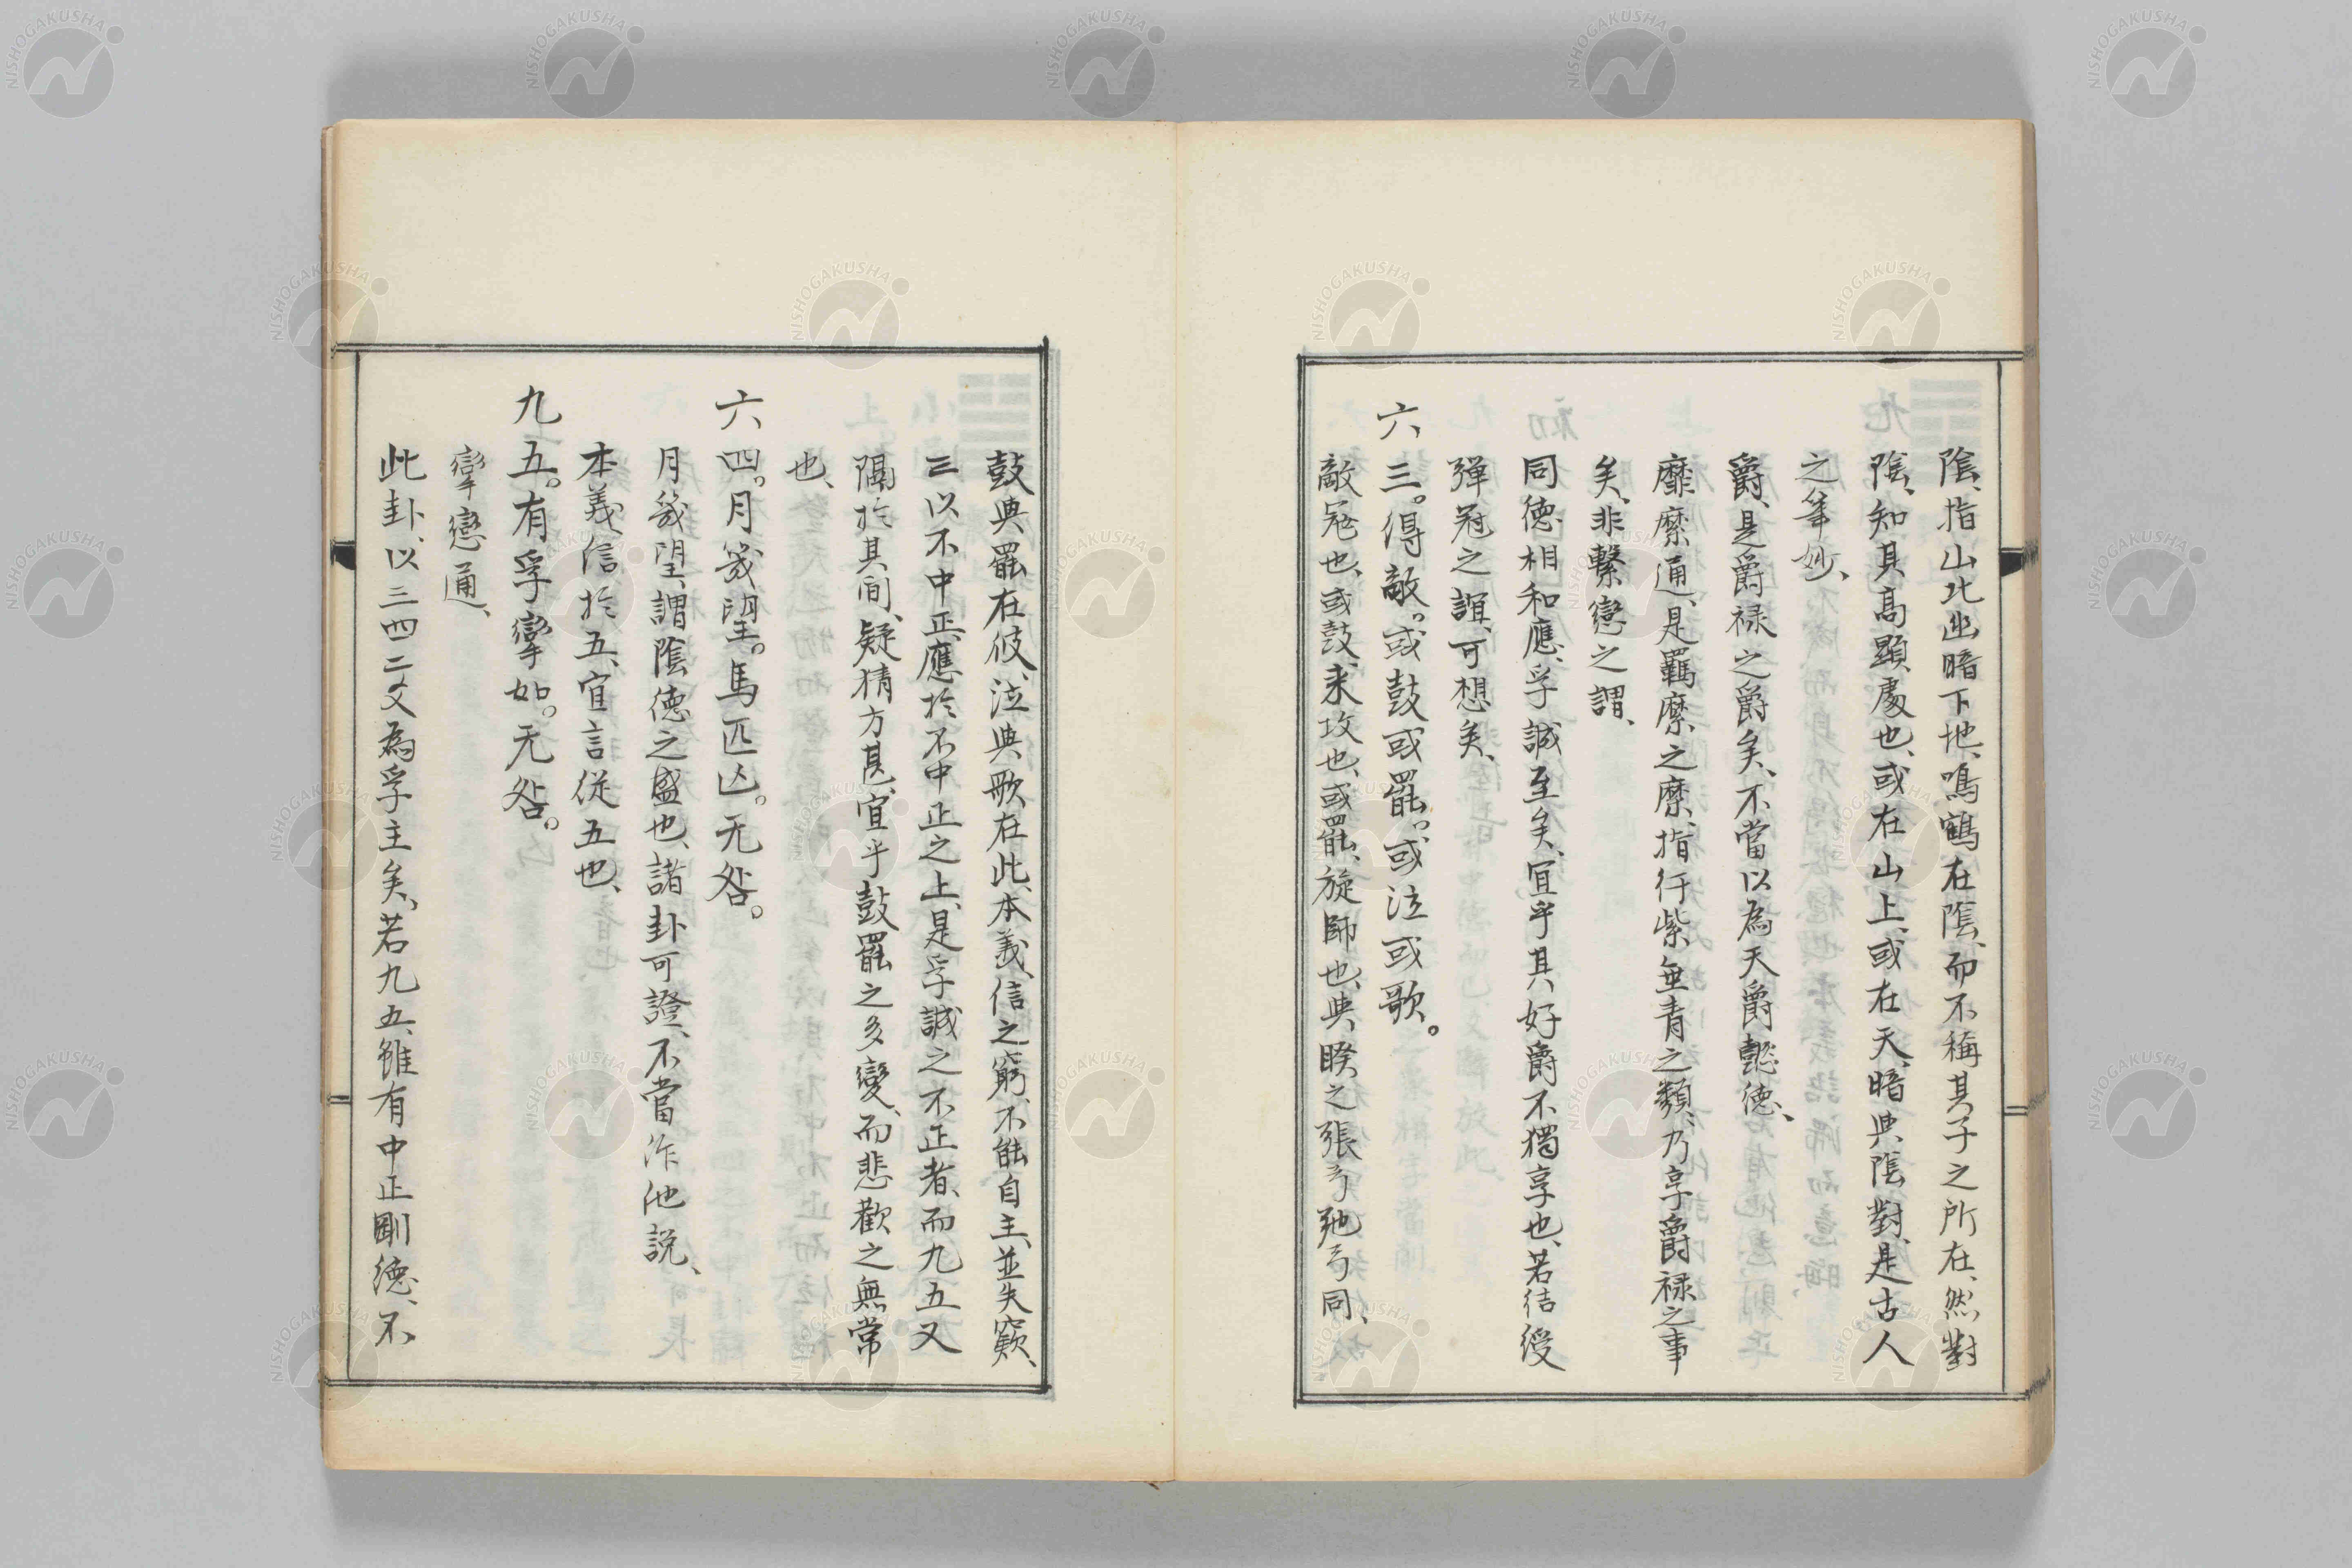 陰、指山北幽暗下地、鳴鶴在陰、而不稱其子之所在、然對
陰、知其高顯處也、或在山上、或在天、暗與陰對、是古人
之筆妙、
爵、是爵禄之爵矣、不當以為天爵懿德、
靡縻通、是羈縻之縻、指紆紫垂青之類、乃享爵禄之事
矣、非繫戀之謂、
同德相和應、孚誠至矣、宜乎其好爵不獨享也、若結綬
彈冠之誼、可想矣、
六三。得敵。或鼓或罷。或泣或歌。
敵冦也、或鼓、来攻也、或罷、旋師也、與睽之張弓弛弓同、
鼓與罷在彼、泣與歌在此、本義、信之窮、不能自主、並失竅、
三以不中正、應於不中正之上、是孚誠之不正者、而九五又
隔於其間、疑猜方甚、宜乎鼓罷之多變、而悲歡之無常
也、
六四。月幾望。馬匹亾。无咎。
月幾望、謂陰德之盛也、諸卦可證、不當作他説、
本義信於五、宜言從五也、
九五。有孚攣如。无咎。
攣戀通、
此卦、以三四二爻為孚主矣、若九五、雖有中正剛德、不
NISHOGAKUSHA